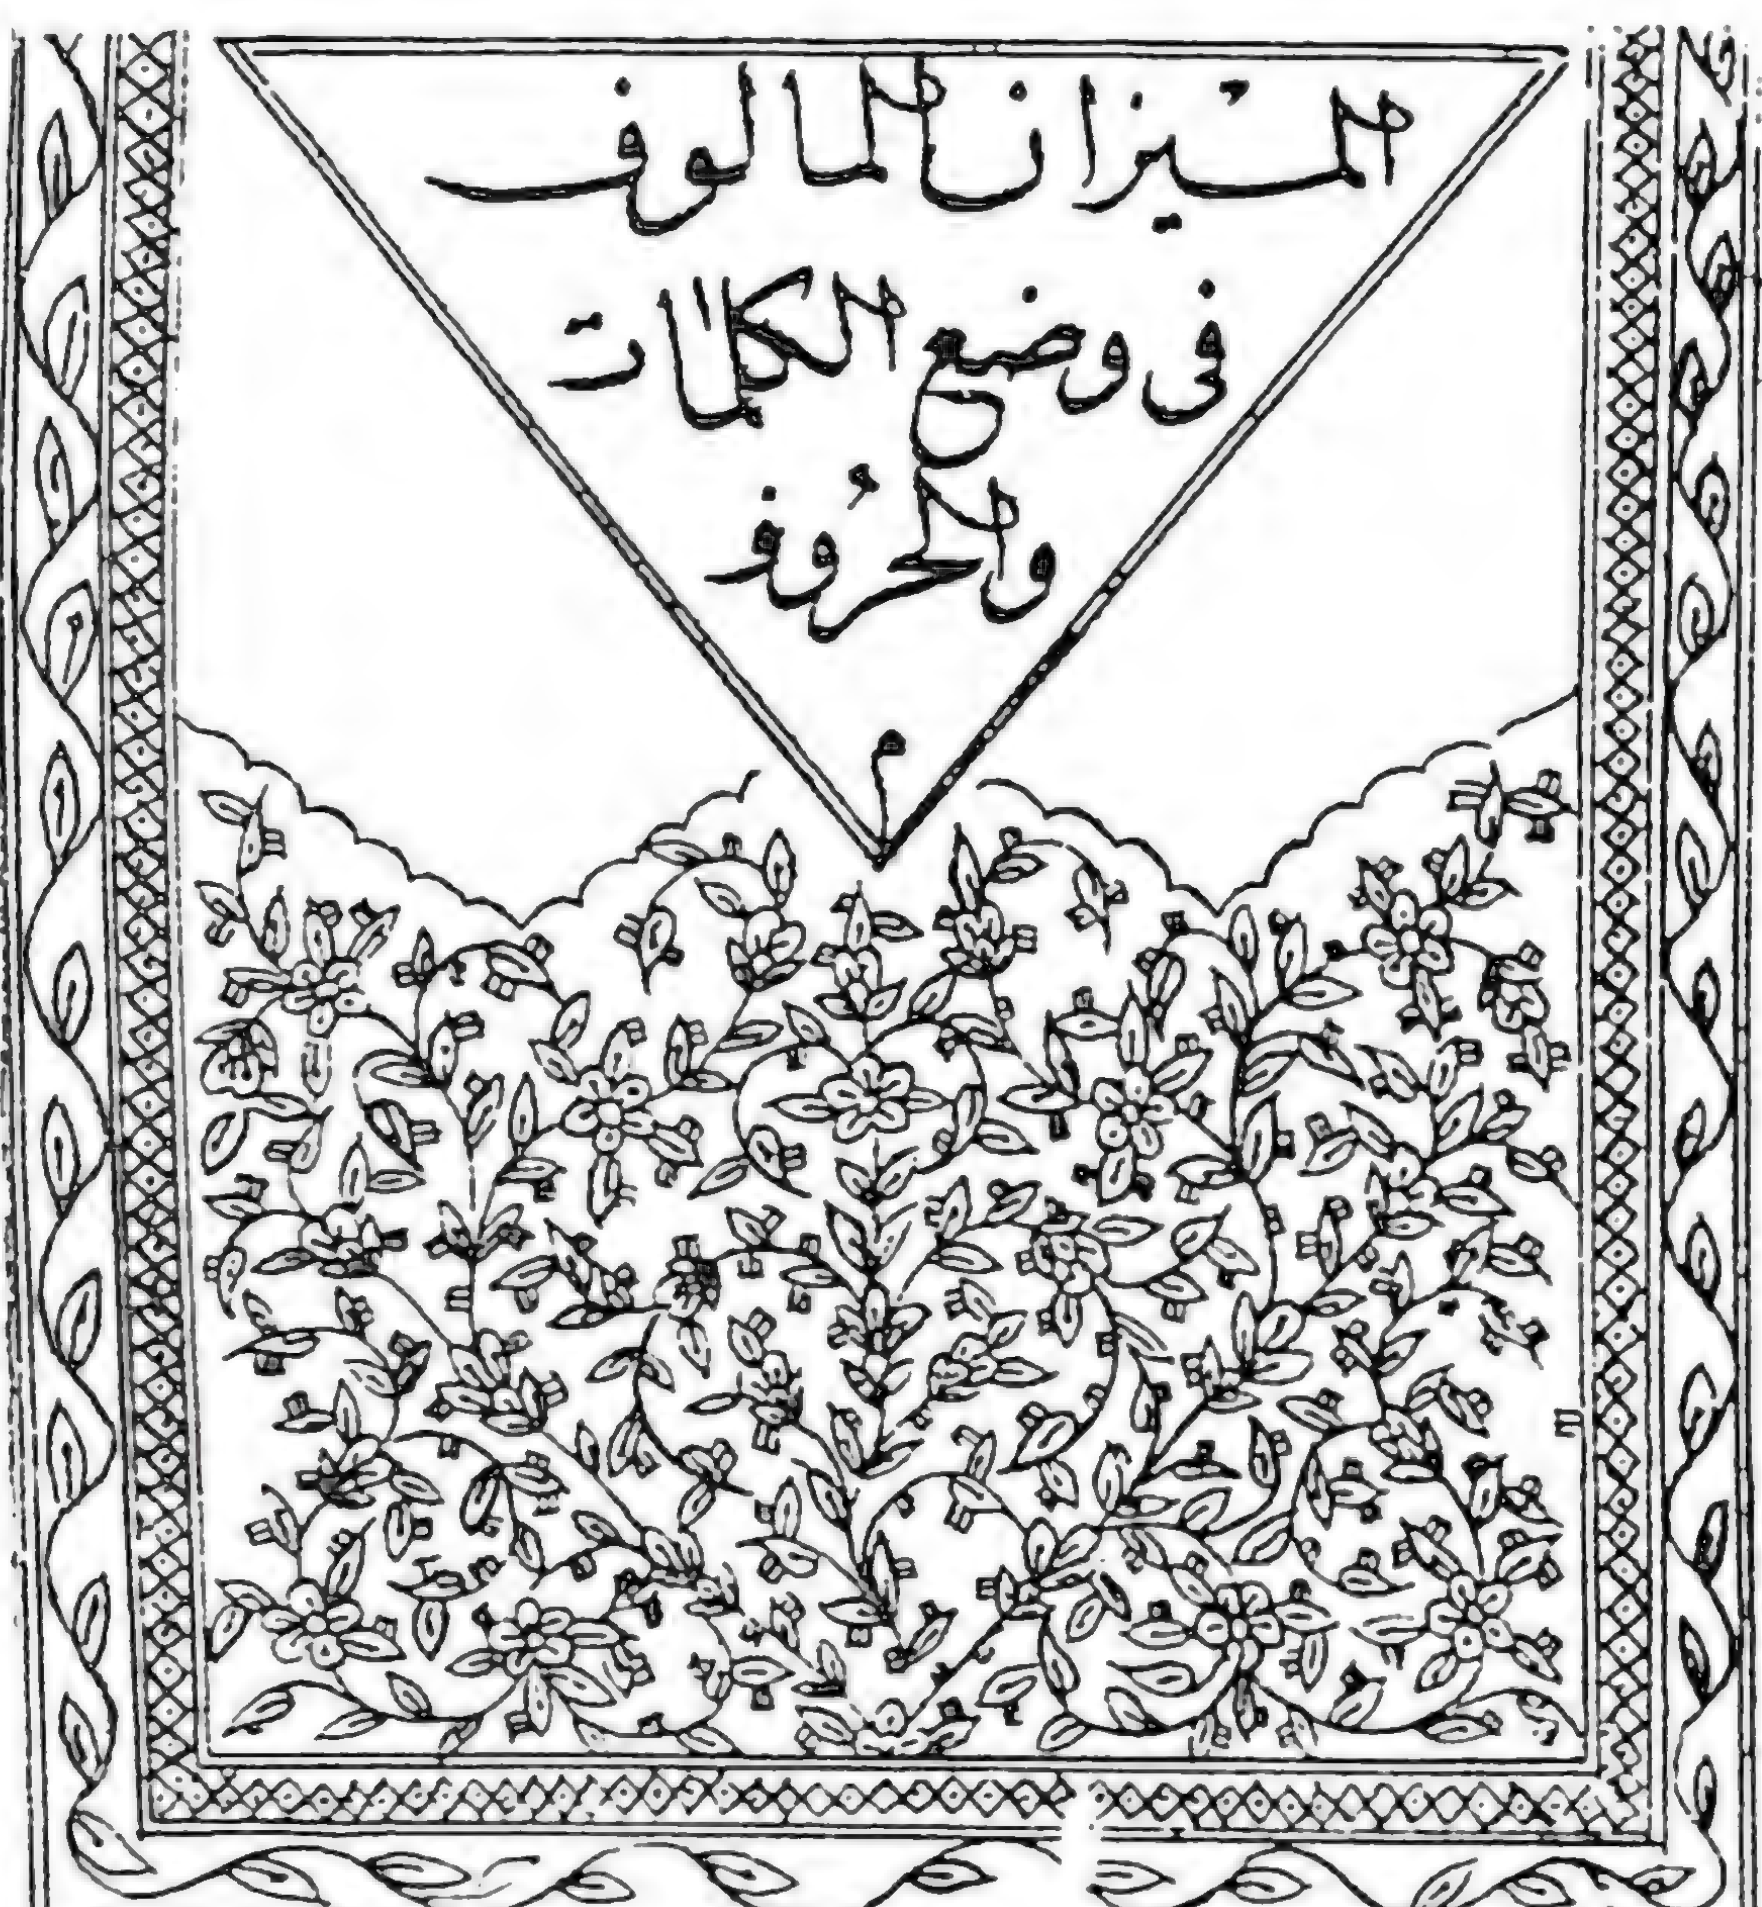 الميزان المألوف
فى وضع الكلمات
والحروف
م